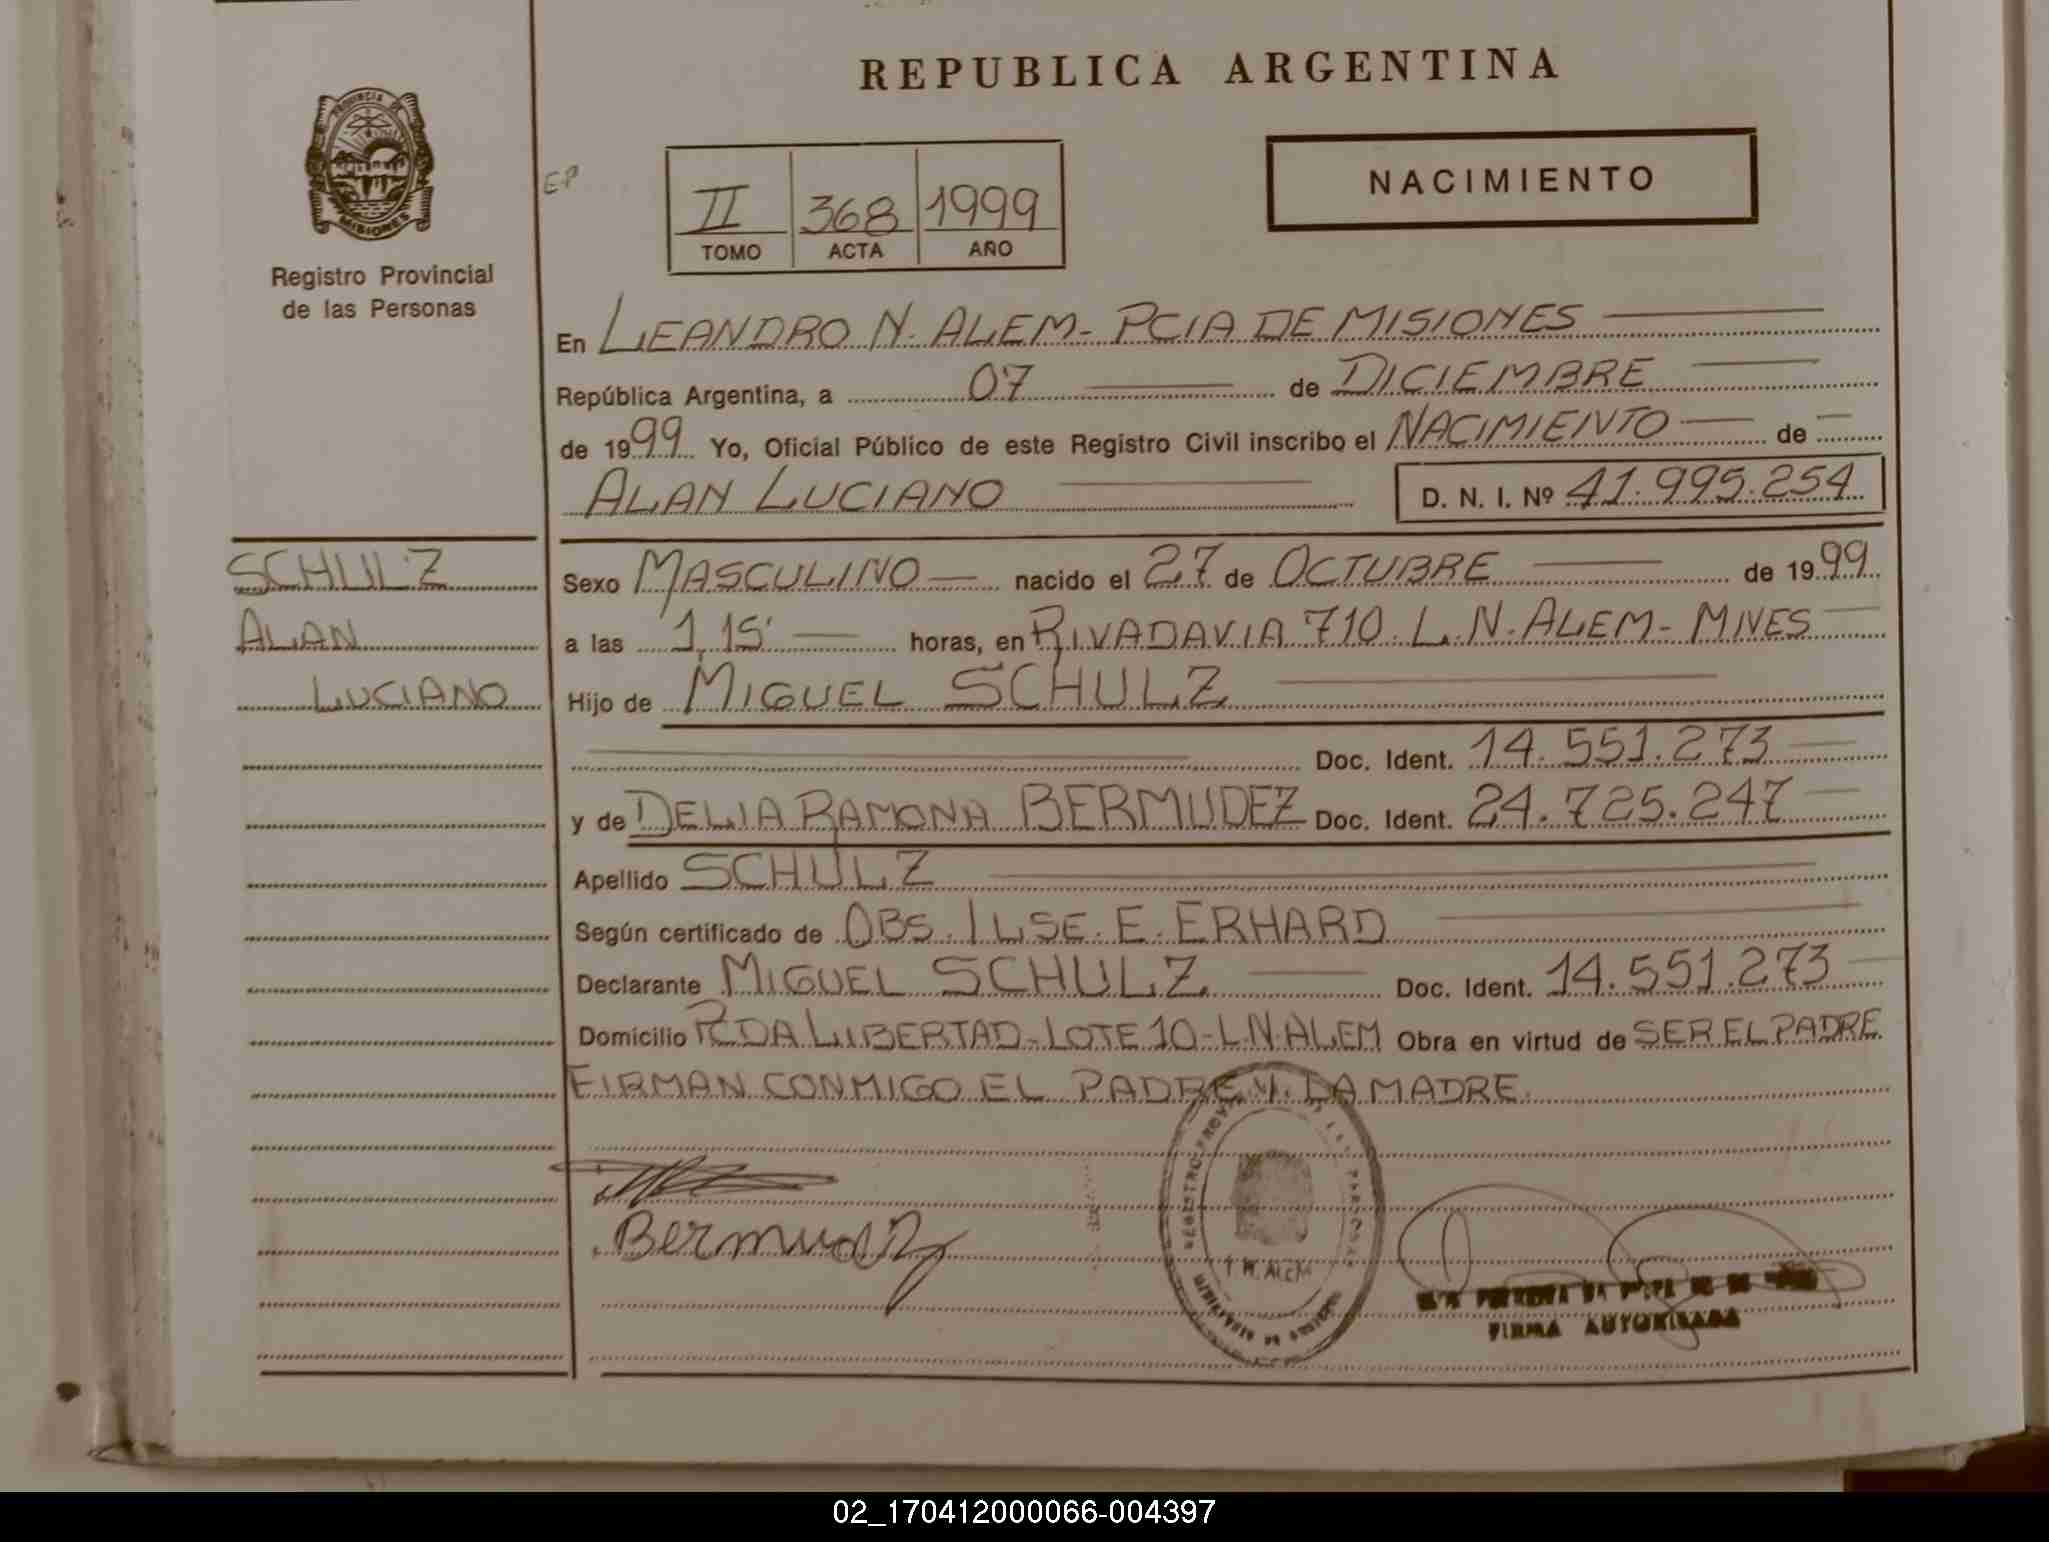 REPUBLICA ARGENTINA
PROVINCIA DE
MISIONES
Registro Provincial
de las Personas
EP
II 368 1999
TOMO ACTA AÑO
NACIMIENTO
En LEANDRO N. ALEM - PCIA DE MISIONES
República Argentina, a 07 de DICIEMBRE
de 1999 Yo, Oficial Público de este Registro Civil inscribo el NACIMIENTO de
ALAN LUCIANO D. N. I. Nº 41.995.254
SCHULZ
ALAN
LUCIANO
Sexo MASCULINO nacido el 27 de OCTUBRE de 1999
a las 1,15' horas, en RIVADAVIA 710. L. N. ALEM - MNES
Hijo de MIGUEL SCHULZ
Doc. Ident. 14.551.273
y de DELIA RAMONA BERMUDEZ Doc. Ident. 24.725.247
Apellido SCHULZ
Según certificado de OBS. ILSE. E. ERHARD
Declarante MIGUEL SCHULZ Doc. Ident. 14.551.273
Domicilio PCDA LIBERTAD - LOTE 10 - L.N. ALEM Obra en virtud de SER EL PADRE
FIRMAN CONMIGO EL PADRE Y LA MADRE.
Bermudez
REGISTRO PROV
ALEM
FIRMA AUTORIZADA
02_170412000066-004397